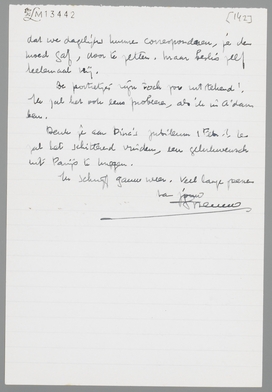 M 13442
[142]
dat we dagelijks kunnen corresponderen, je den
moed gaf, door te zetten. Maar beslis zelf
heelemaal vrij.
De portretjes zijn toch zoo uitstekend!
Ik zal het ook eens probeeren, als ik in A'dam
ben.
Denk je aan Dina's jubileum 1 Febr? Ze
zal het schitterend vinden, een gelukwensch
uit Parijs te krijgen.
Ik schrijf gauw weer. Veel hartelijks
van jouw